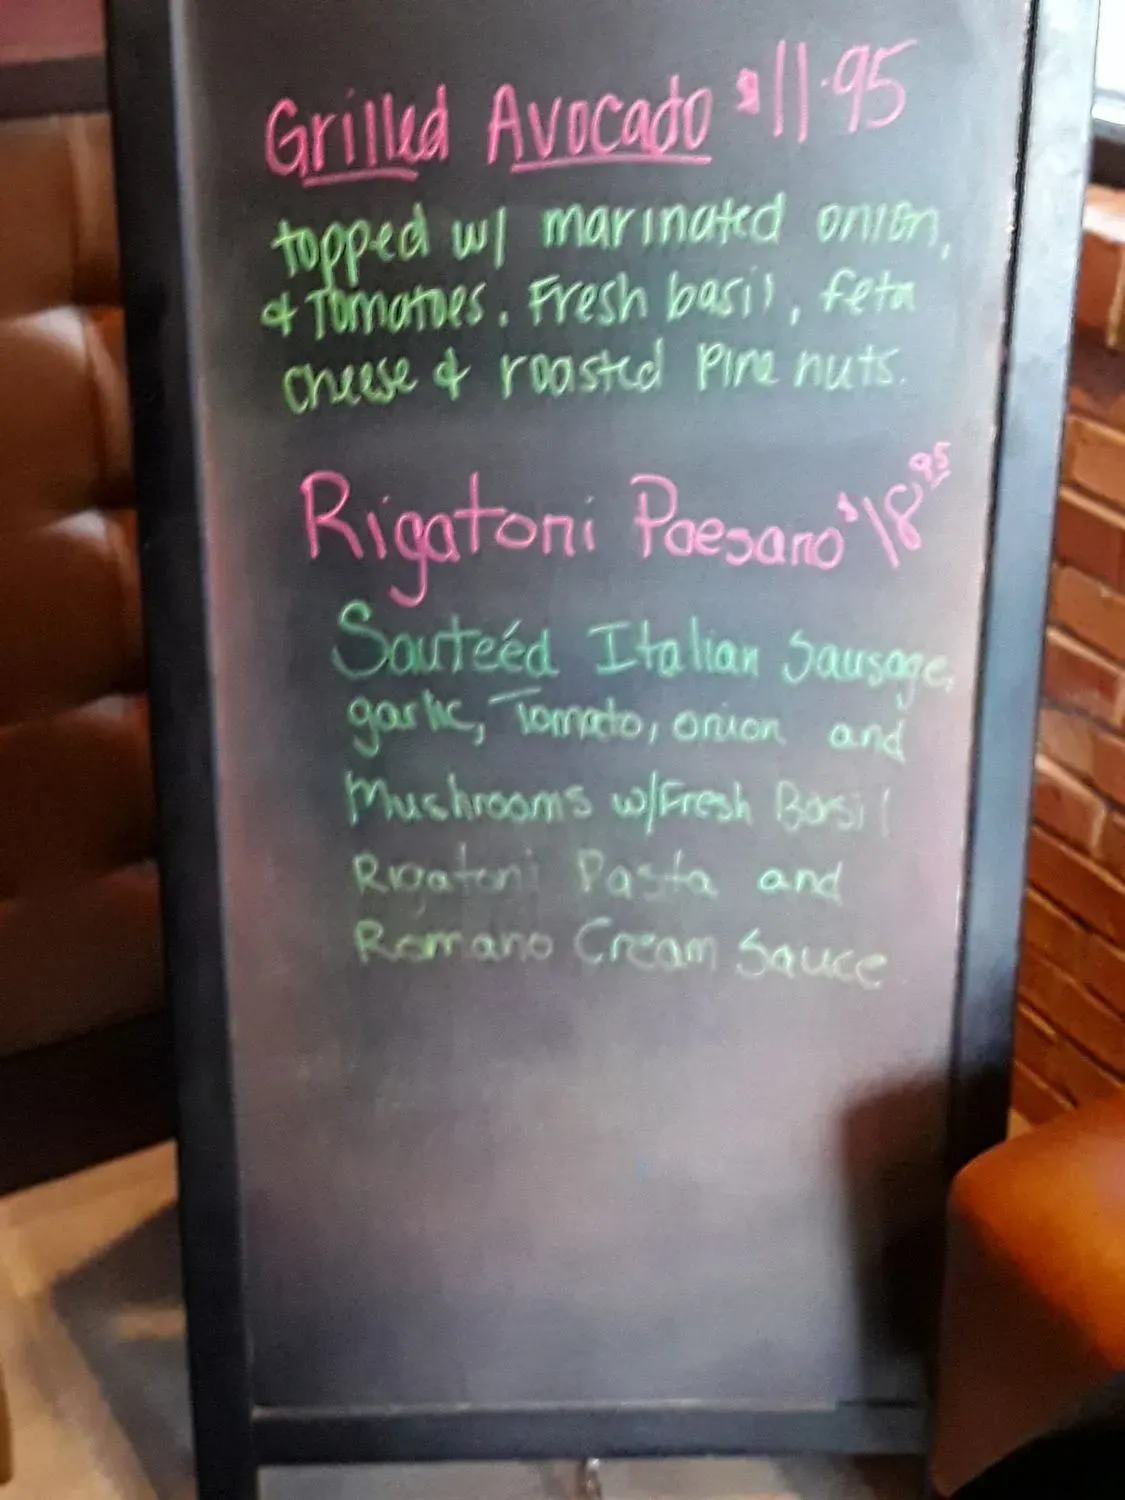 Grilled Avocado $11.95
topped w/ marinated onion,
& Tomatoes, Fresh basil, feta
cheese & roasted pine nuts.
Rigatoni Paesano $18.95
Sauteéd Italian Sausage,
garlic, Tomato, onion and
Mushrooms w/Fresh Basil
Rigatoni Pasta and
Romano Cream Sauce